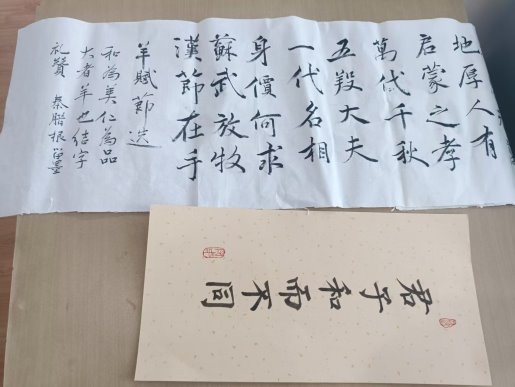 地厚人有
启蒙之孝
萬代千秋
五羖大夫
一代名相
身價何求
蘇武放牧
漢節在手
羊賦節选
和為美仁為品
大者羊也结字
礼贊 秦腊根
君子和而不同